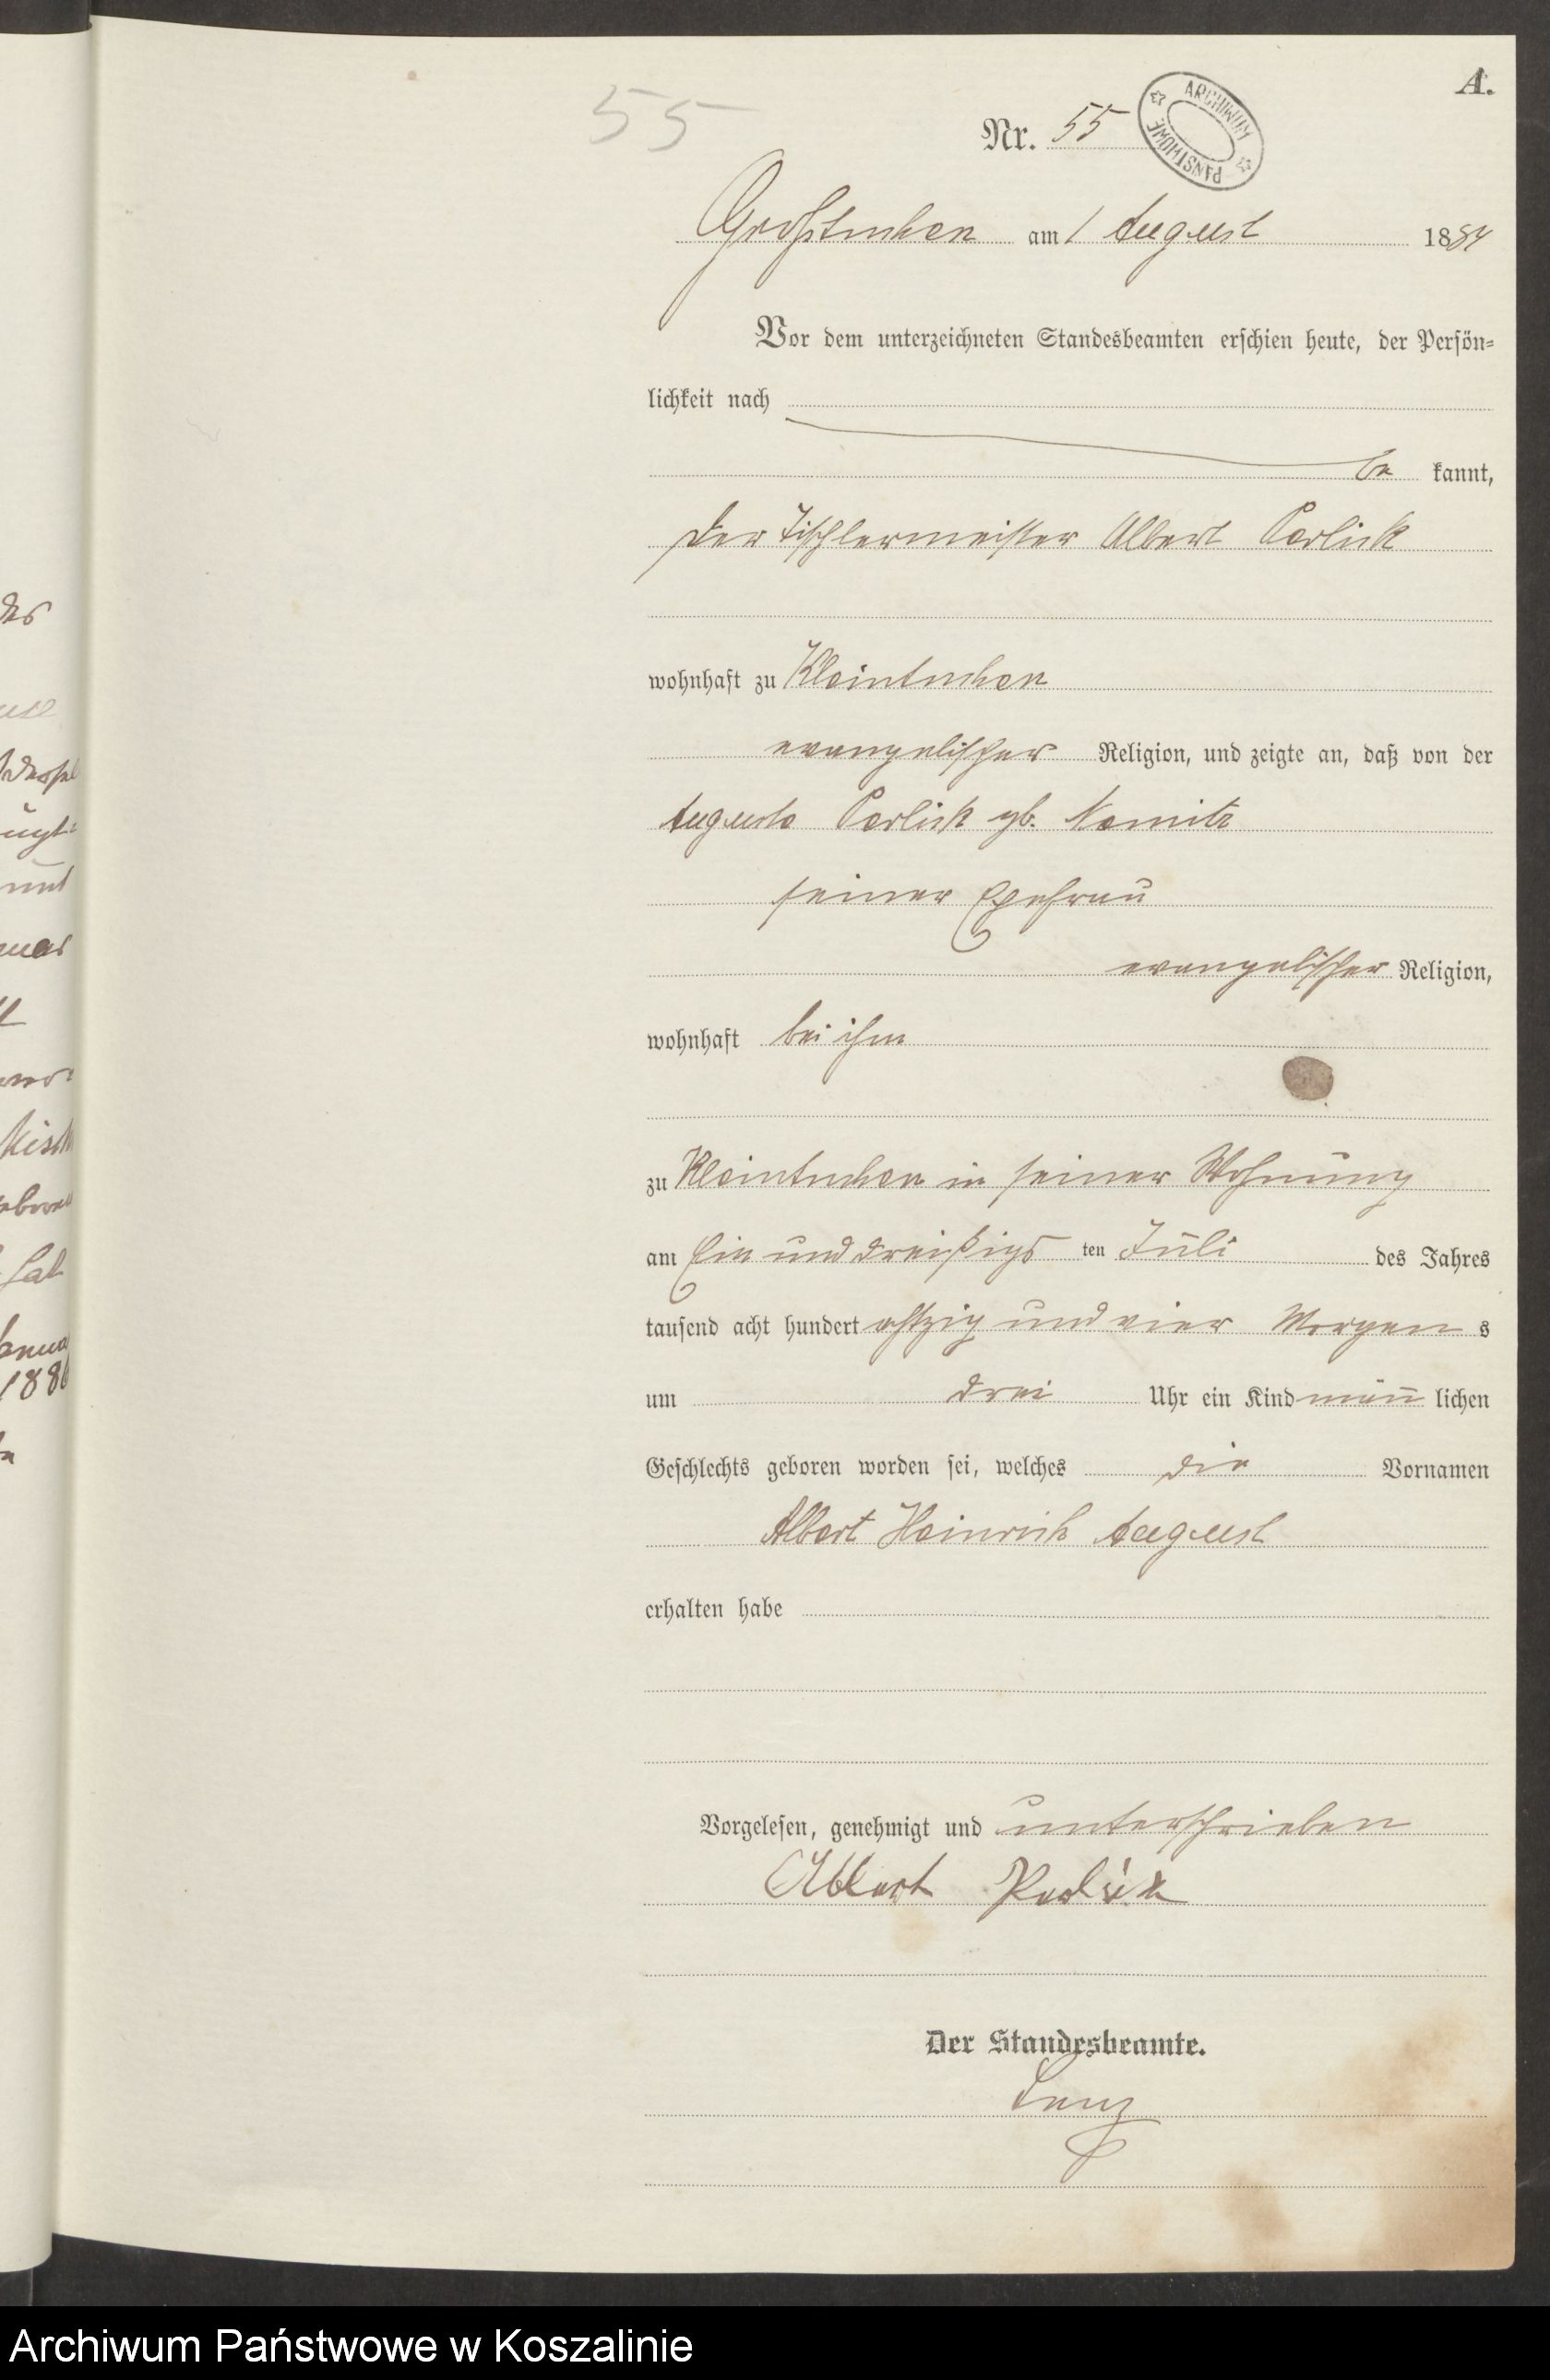 A.
55
Nr. 55
ARCHIWUM PAŃSTWOWE
Großtuchen am 1 August 1884
Vor dem unterzeichneten Standesbeamten erschien heute, der Persön-
lichkeit nach
be kannt,
der Tischlermeister Albert Perlick
wohnhaft zu Kleintuchen
evangelischer Religion, und zeigte an, daß von der
Auguste Perlick gb. Nemitz
seiner Ehefrau
evangelischer Religion,
wohnhaft bei ihm
zu Kleintuchen in seiner Wohnung
am Ein und dreißigs ten Juli des Jahres
tausend acht hundert achtzig und vier Morgen s
um drei Uhr ein Kind männ lichen
Geschlechts geboren worden sei, welches die Vornamen
Albert Heinrich August
erhalten habe
Vorgelesen, genehmigt und unterschrieben
Albert Perlick
Der Standesbeamte.
Lenz
Archiwum Państwowe w Koszalinie